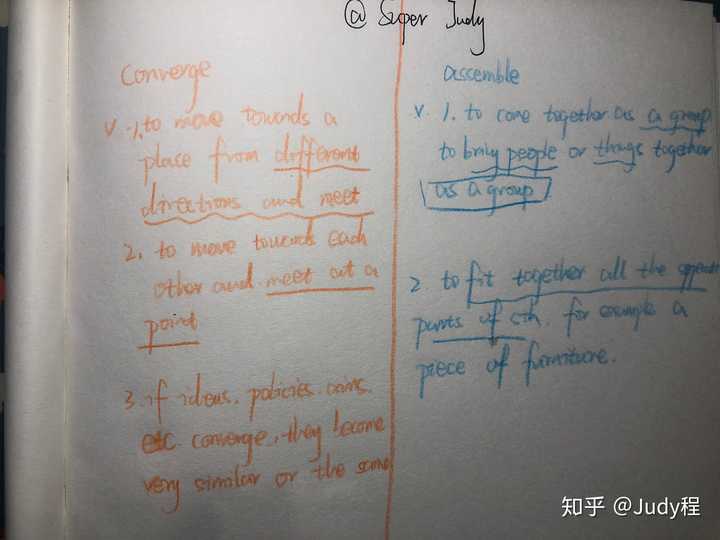 @ Super Judy
Converge
v. 1. to move towards a
place from different
directions and meet
2. to move towards each
other and meet at a
point
3. if ideas, policies, aims.
etc. converge, they become
very similar or the same
assemble
v. 1. to come together as a group
to bring people or things together
as a group
2. to fit together all the
parts of sth. for example a
piece of furniture.
知乎 @Judy程